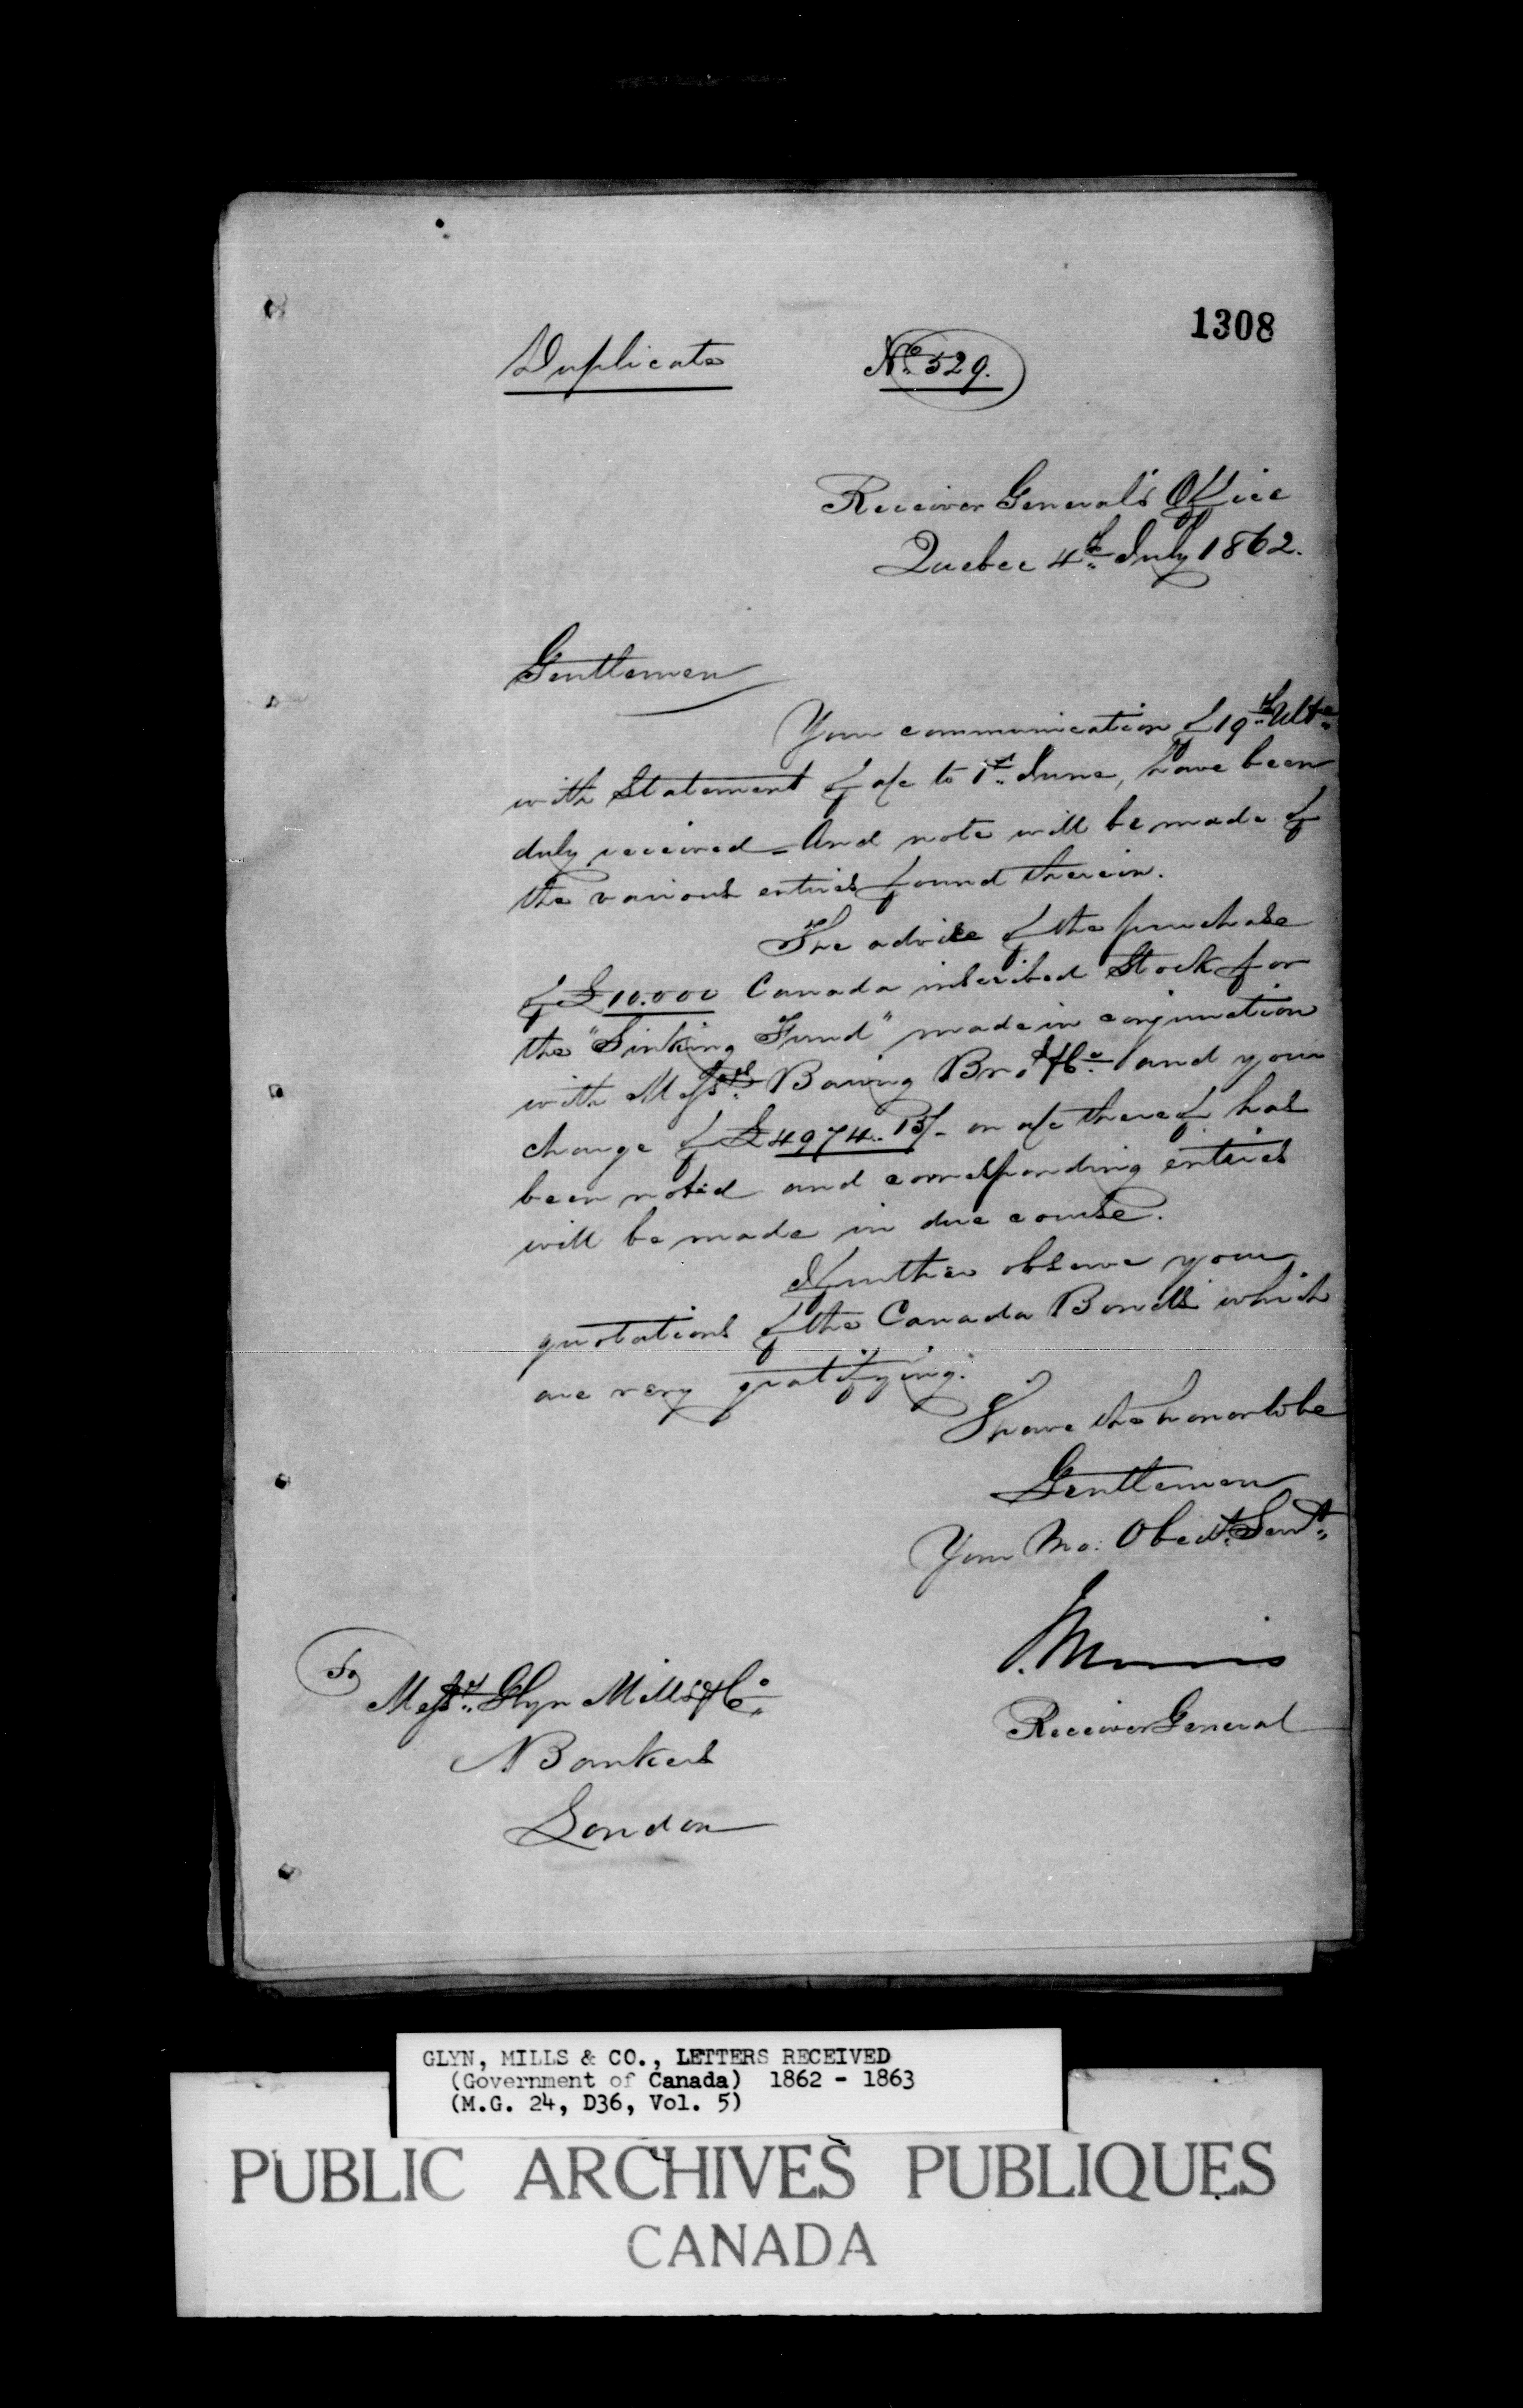 1308
Duplicate
No. 529.
Receiver General's Office
Quebec 4th July 1862.
Gentlemen
Your communication of 19th Ulto.
with Statement of a/c to 1st June, have been
duly received - And note will be made of
the various entries found therein.
The advice of the purchase
of £10.000 Canada inscribed Stock for
the "Sinking Fund" made in conjunction
with Messrs. Baring Bros & Co. and your
charge of £4974..13/- on a/c thereof has
been noted and corresponding entries
will be made in due course.
I further observe your
quotations of the Canada Bonds which
are very gratifying.
I have the honor to be
Gentlemen
Your Mo: Obedt. Servt.
J. Morris
Receiver General
To
Messrs. Glyn Mills & Co.
Bankers
London
GLYN, MILLS & CO., LETTERS RECEIVED
(Government of Canada) 1862 - 1863
(M.G. 24, D36, Vol. 5)
PUBLIC ARCHIVES PUBLIQUES
CANADA